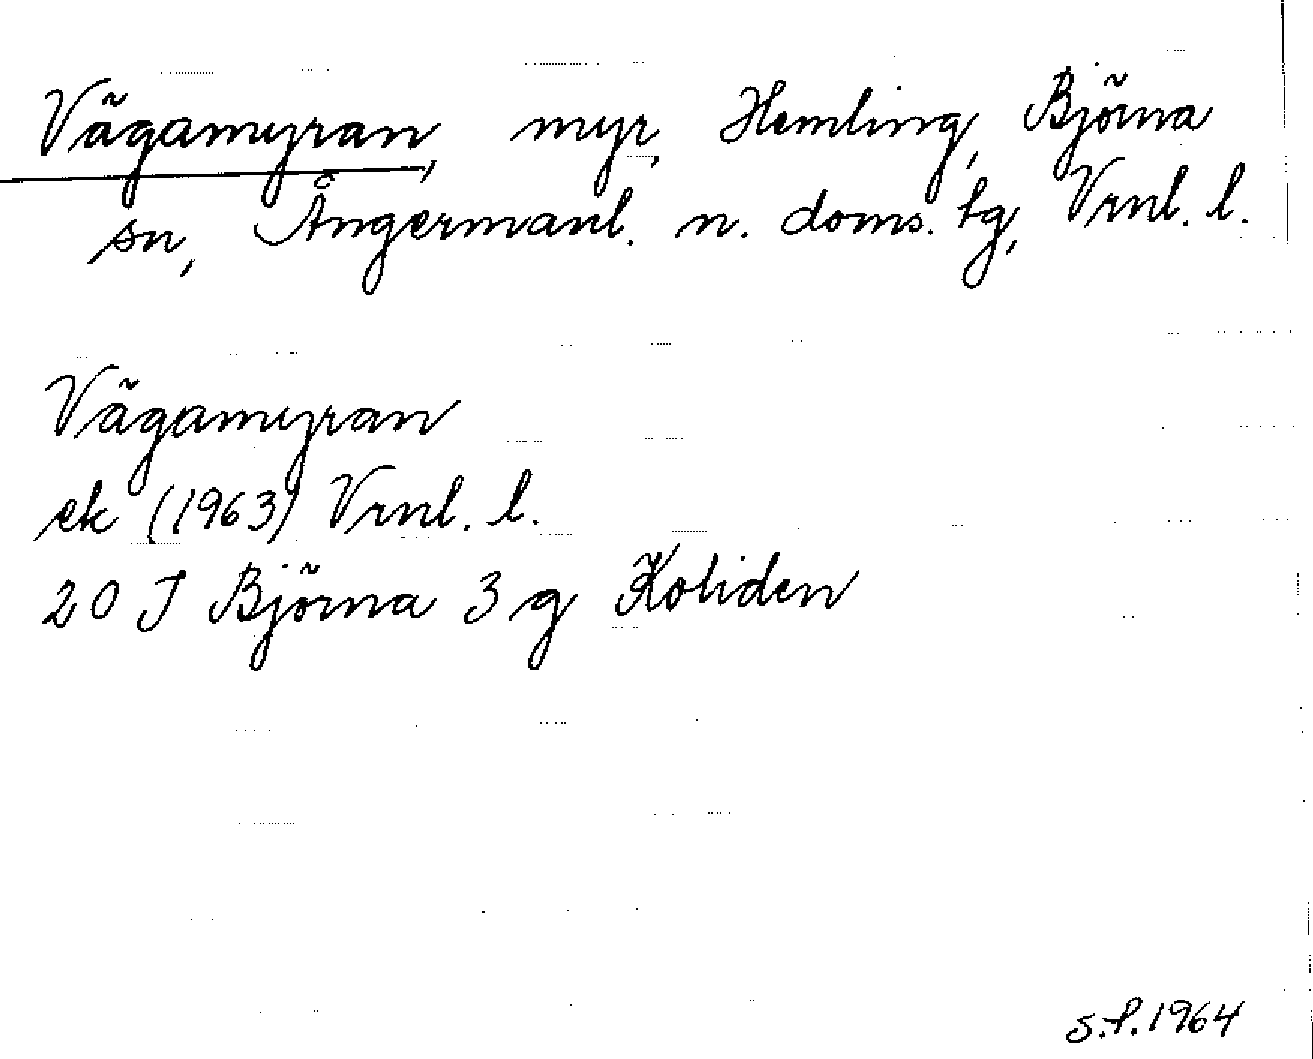 Vägamyran, myr, Hemling, Björna
sn, Ångermanl. n. doms. tg, Vrnl. l.
Vägamyran
ek (1963) Vrnl. l.
20 J Björna 3 g Koliden
S.P. 1964